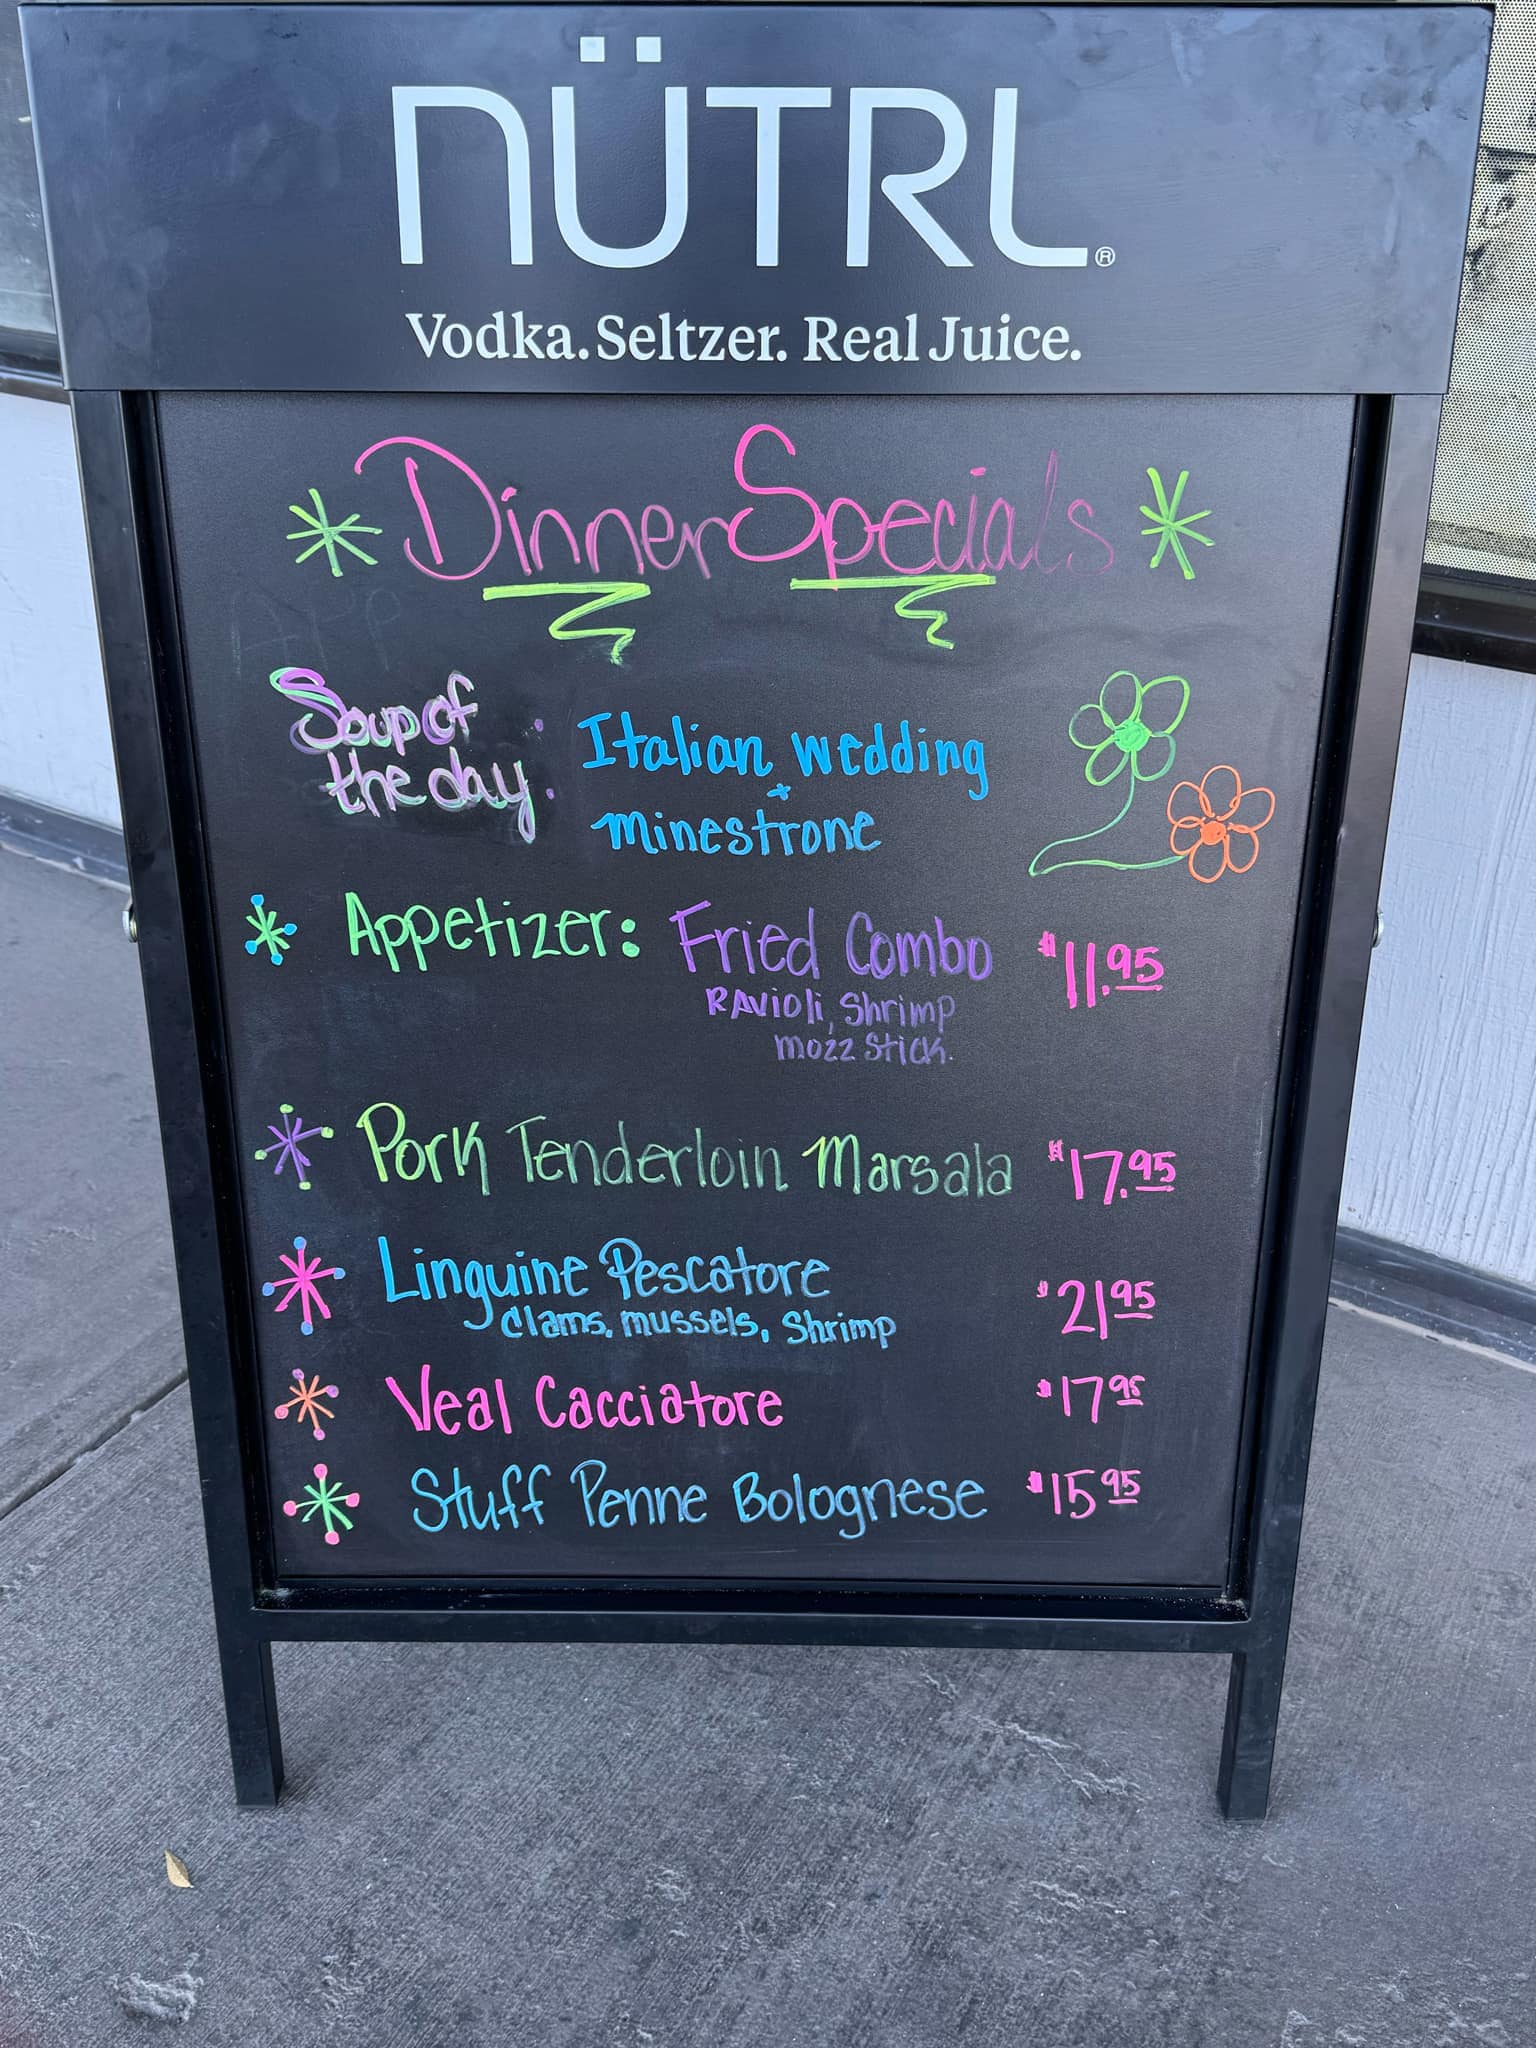 NÜTRL®
Vodka. Seltzer. Real Juice.
Dinner Specials
APP
Soup of the day:
Italian wedding
+
minestrone
Appetizer: Fried Combo $11.95
Ravioli, Shrimp
mozz stick.
Pork Tenderloin Marsala $17.95
Linguine Pescatore $21.95
clams, mussels, shrimp
Veal Cacciatore $17.95
Stuff Penne Bolognese $15.95